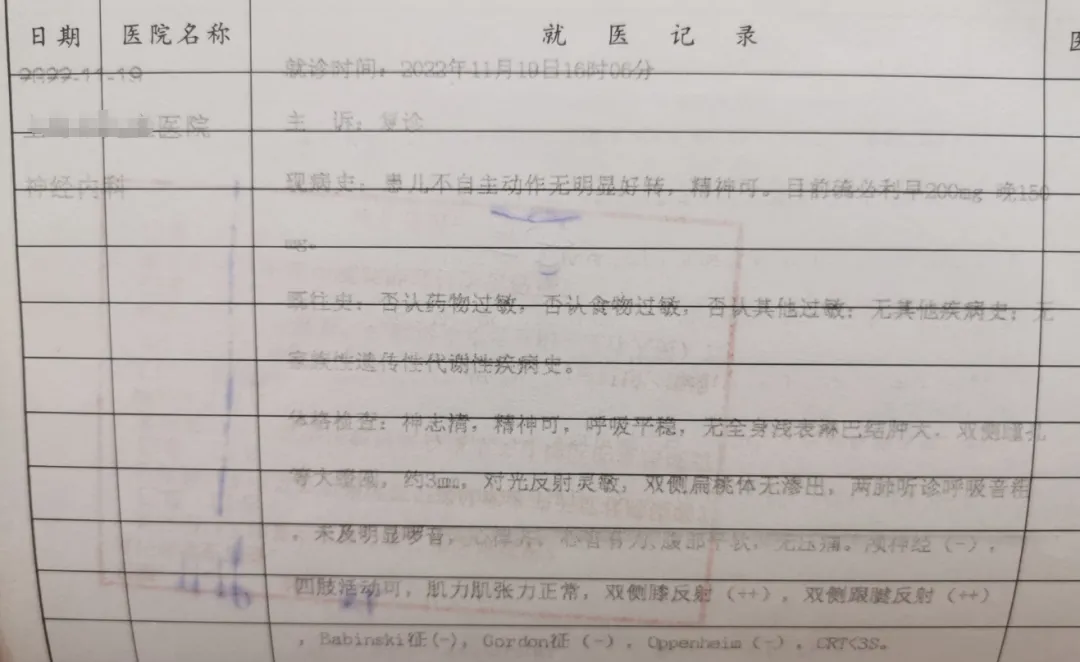 日期 医院名称 就医记录 医
2022-11-19 就诊时间:2022年11月19日16时06分
医院 主 诉:复诊
神经内科 现病史:患儿不自主动作无明显好转,精神可。目前硫必利早200mg 晚150
mg。
既往史:否认药物过敏,否认食物过敏,否认其他过敏;无其他疾病史;无
家族性遗传性代谢性疾病史。
体格检查:神志清,精神可,呼吸平稳,无全身浅表淋巴结肿大,双侧瞳孔
等大等圆,约3mm,对光反射灵敏,双侧扁桃体无渗出,两肺听诊呼吸音粗
,未及明显啰音,心律齐,心音有力,腹部平软,无压痛。颅神经(-),
四肢活动可,肌力肌张力正常,双侧膝反射(++),双侧跟腱反射(++)
,Babinski征(-),Gordon征(-),Oppenheim(-),CRT<3S。